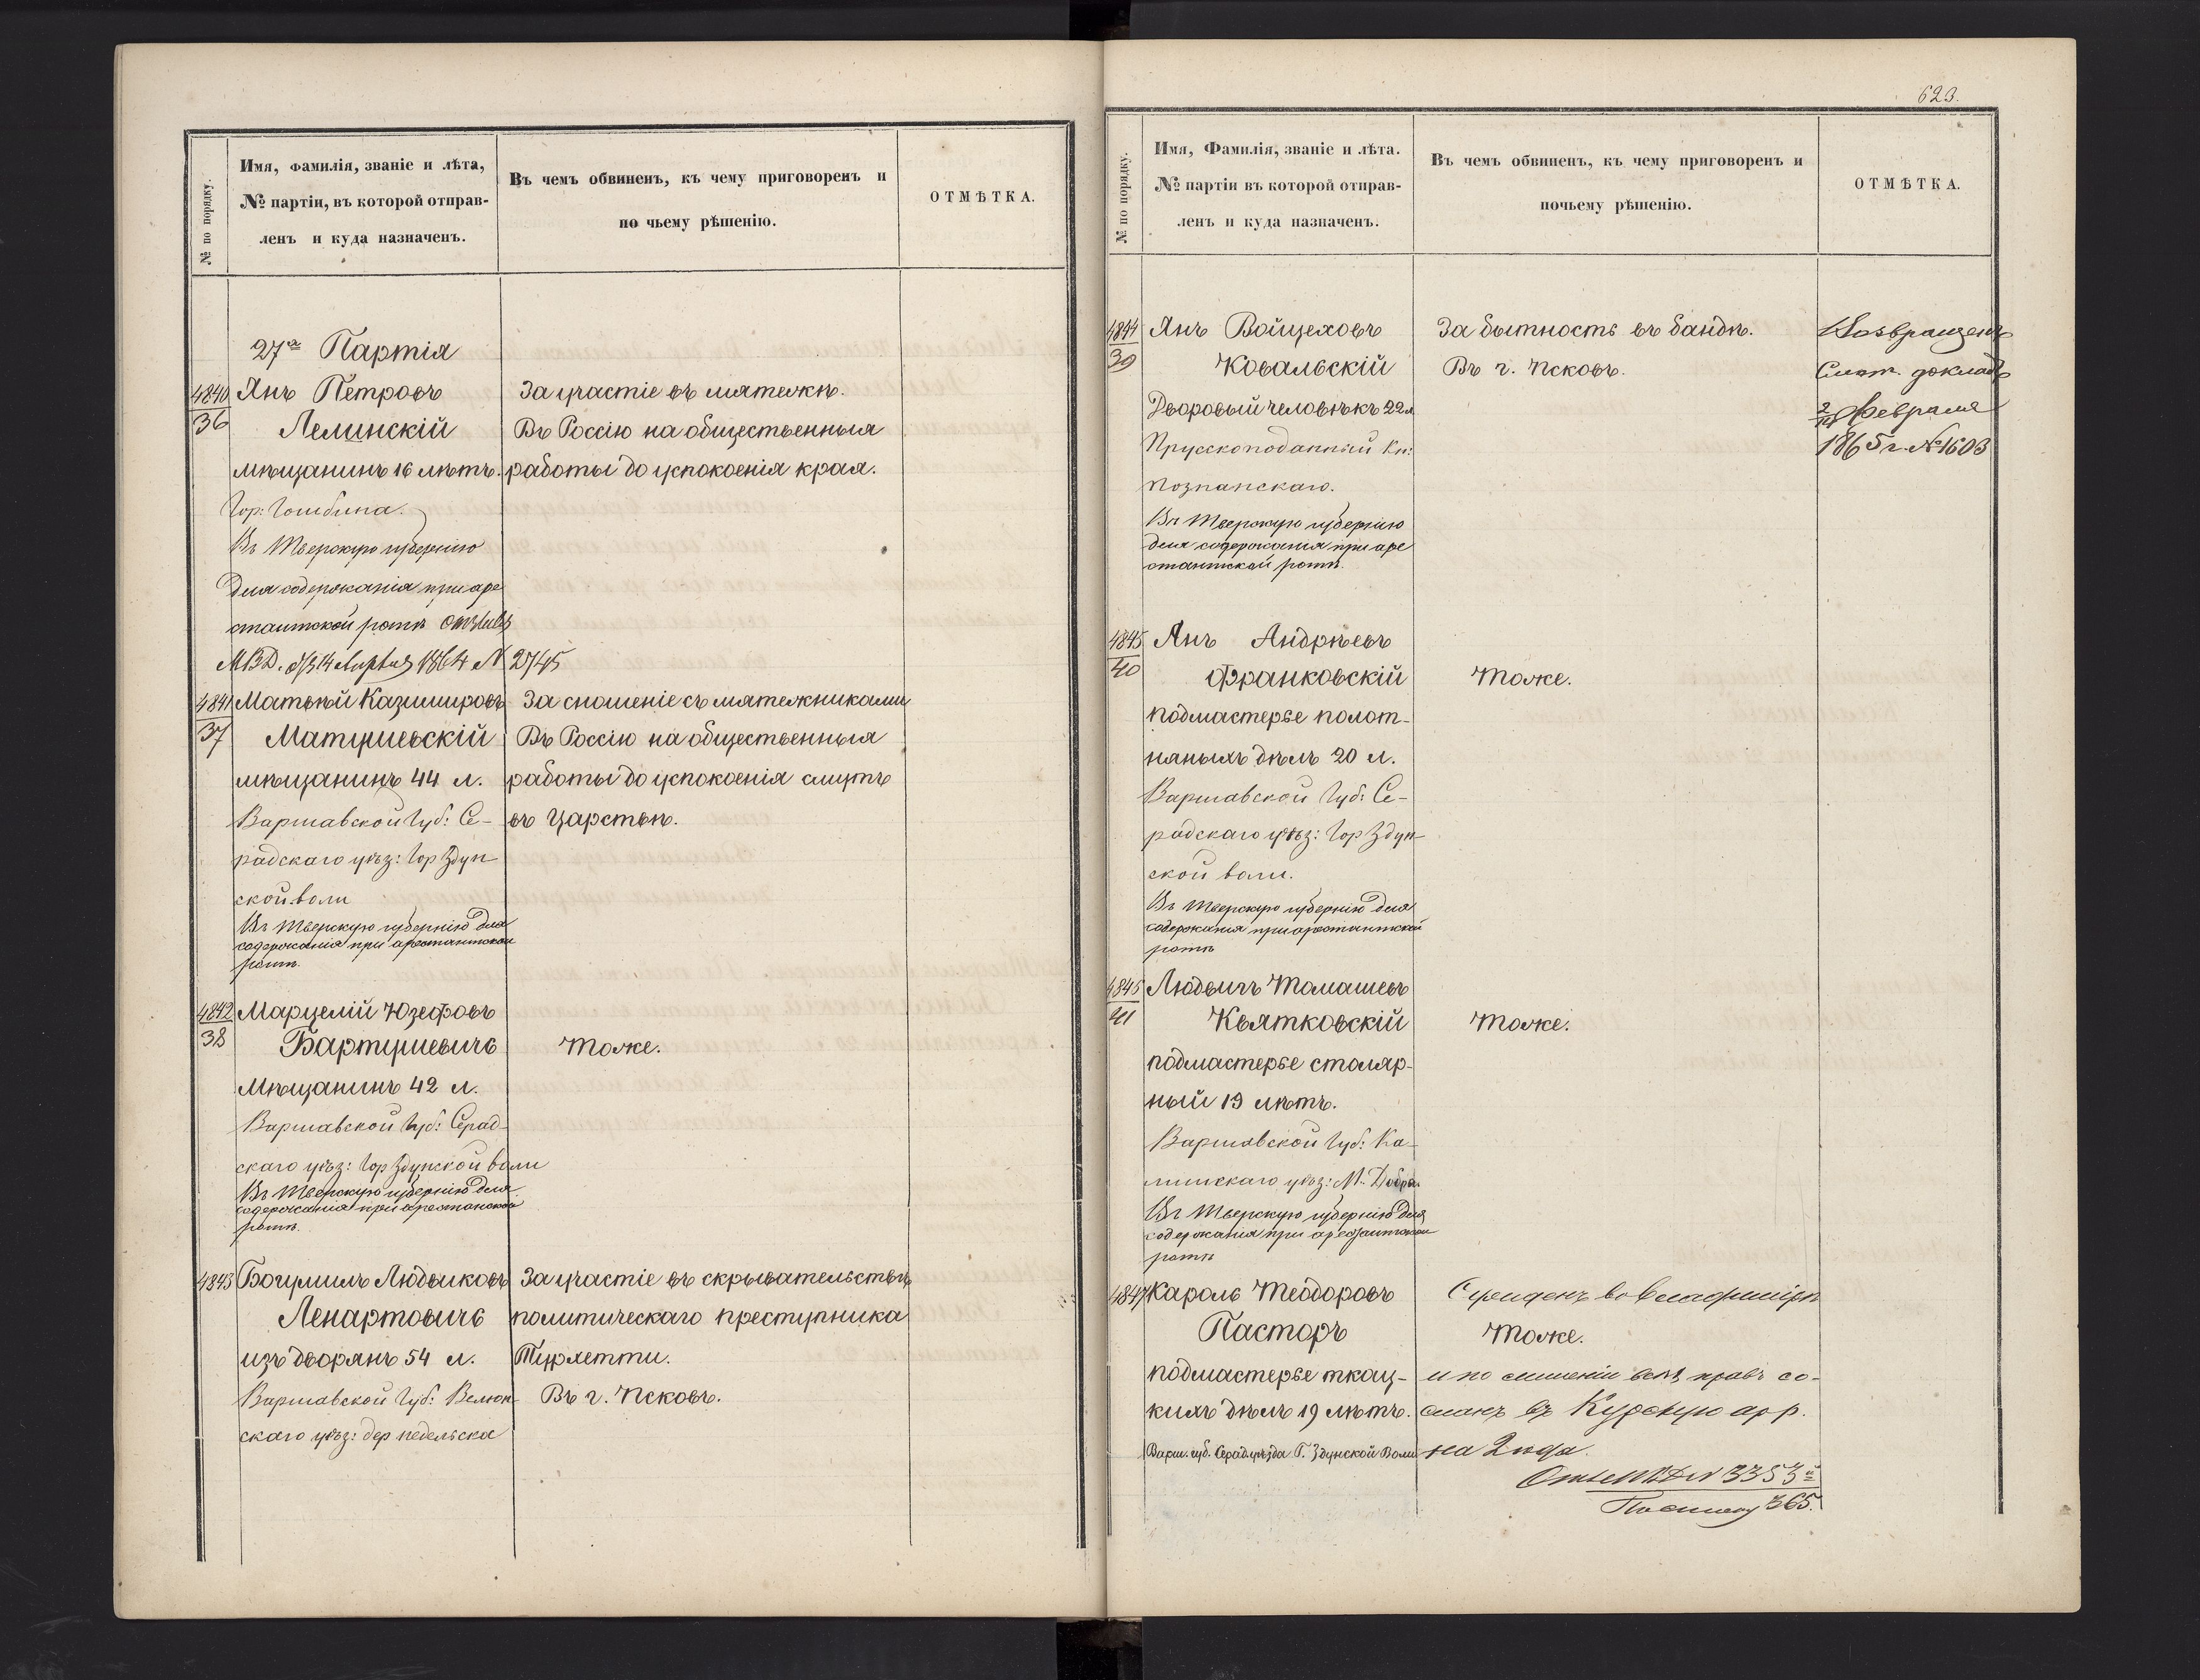 № по порядку.
Имя, фамилія, званіе и лѣта,
№ партіи, въ которой отправ-
ленъ и куда назначенъ.
Въ чемъ обвиненъ, къ чему приговоренъ и
по чьему рѣшенію.
ОТМѢТКА.
27я Партія
4840
36
Янъ Петровъ
Лелинскій
мѣщанинъ 16 лѣтъ.
Гор: Гомбина.
Въ Тверскую губернію
для содержанія при аре
стантской ротѣ
МВД. 1864 N 2745
За участіе въ мятежѣ.
Въ Россію на общественныя
работы до успокоенія края.
4841
37
Матѣѣй Казимировъ
Матушевскій
мѣщанинъ 44 л.
Варшавской Губ: Се-
радскаго уѣз: Гор Здун
ской воли
Въ Тверскую губернію для
содержанія при арестантской
ротѣ.
За сношеніе съ мятежниками
Въ Россію на общественныя
работы до успокоенія смутъ
въ Царствѣ.
4842
38
Марцелій Юзефовъ
Бартушевичъ
Мѣщанинъ 42 л.
Варшавской Губ: Серад-
скаго уѣз: Гор Здунской воли
Въ Тверскую губернію для
содержанія при арестанской
ротѣ.
Тоже.
4843
Богумилъ Людвиковъ
Ленартовичъ
изъ дворянъ 54 л.
Варшавской Губ: Велюн-
скаго уѣз: дер недельска
За участіе въ скрывательствѣ
политическаго преступника
Турлетти.
Въ г. Псковъ.
623.
№ по порядку.
Имя, Фамилія, званіе и лѣта.
№ партіи въ которой отправ-
ленъ и куда назначенъ.
Въ чемъ обвиненъ, къ чему приговоренъ и
почьему рѣшенію.
ОТМѢТКА.
4844
39
Янъ Войцеховъ
Ковальскій
Дворовый человѣкъ 22 л
Прусскоподанный Кн:
Познанскаго.
Въ Тверскую губернію
для содержанія при аре
стантской ротѣ.
За бытность въ бандѣ.
Въ г. Псковъ.
Возвращенъ
Смот. докладъ
2/14 февраля
1865 г. № 1603
4845
40
Янъ Андрѣевъ
Франковскій
подмастерье полот-
няныхъ дѣлъ 20 л.
Варшавской Губ: Се-
радскаго уѣз: Гор Здун-
ской воли.
Въ Тверскую губернію для
содержанія при арестантской
ротѣ
Тоже.
4845
41
Людвигъ Томашевъ
Квятковскій
подмастерье столяр-
ный 19 лѣтъ.
Варшавской Губ: Ка-
лишскаго уѣз: М. Добра
Въ Тверскую губернію для
содержанія при арестантской
ротѣ
Тоже.
4847
Кароль Теодоровъ
Пасторъ
подмастерье ткац-
кихъ дѣлъ 19 лѣтъ.
Варш. губ. Серад. уѣзда Г. Здунской Воли
Сужденъ во Владимірѣ
Тоже.
и по лишеніи всѣхъ правъ со-
сланъ въ Курскую арр.
на 2 года.
3353
365.